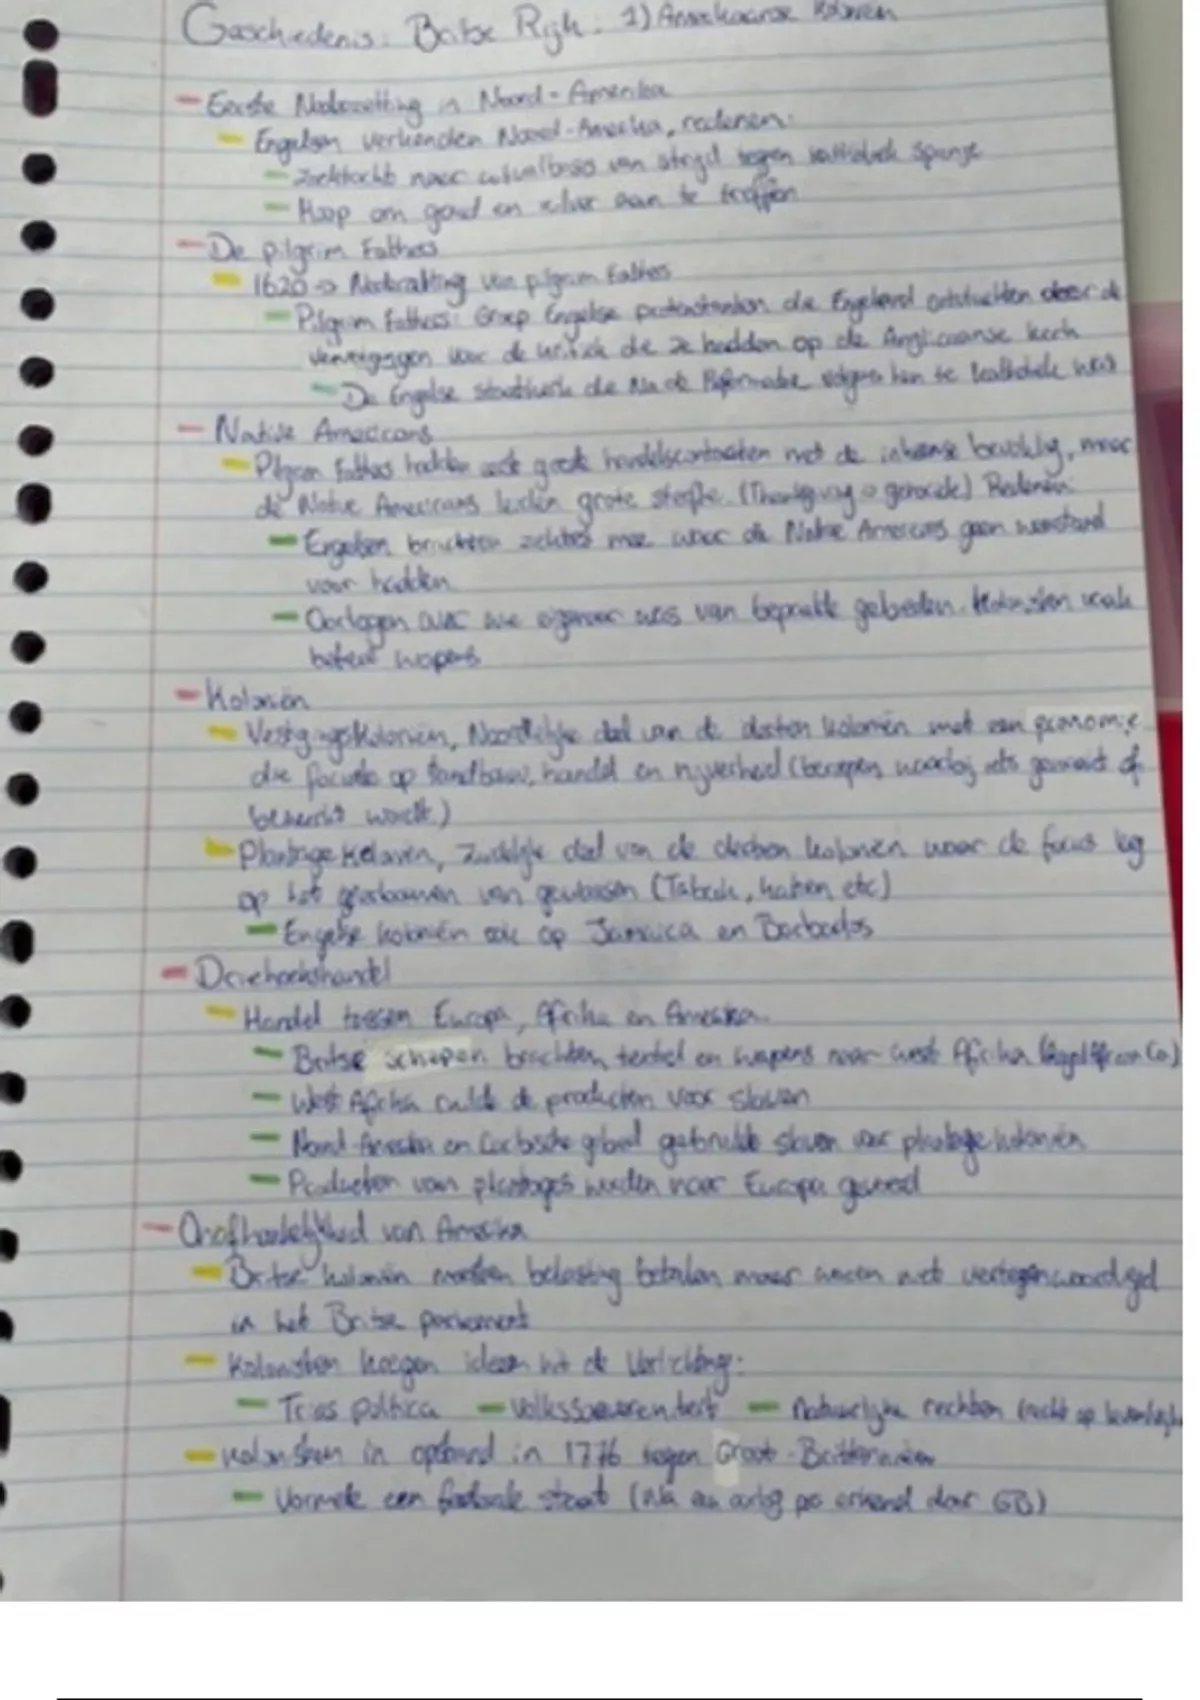 Geschiedenis: Britse Rijk. 1) Amerikaanse kolonien
- Eerste Nederzetting in Noord-Amerika
- Engelsen verkenden Noord-Amerika, redenen:
- zoektocht naar van strijd tegen katholiek Spanje
- Hoop om goud en zilver aan te treffen
- De pilgrim Fathers
- 1620 -> Nederzetting van pilgrim Fathers
- Pilgrim fathers: Groep Engelse protestanten die Engeland ontvluchten door de
vervolgingen voor de kritiek die ze hadden op de Anglicaanse kerk
- De Engelse staatskerk die na de Reformatie volgens hen te katholiek was
- Native Americans
- Pilgrim Fathers hadden eerst goede handelscontacten met de inheemse bevolking, maar
de Native Americans leiden grote sterfte. (Thanksgiving genocide) Redenen:
- Engelsen brachten ziektes mee waar de Native Americans geen weerstand
voor hadden
- Oorlogen over wie eigenaar was van bepaalde gebieden. Kolonisten
betere wapens
- Koloniën
- Vestigingskoloniën, Noordelijke deel van de dertien koloniën met een economie
die focuste op landbouw, handel en nijverheid (beroepen waarbij iets gemaakt of
bewerkt wordt.)
- Plantage koloniën, Zuidelijke deel van de dertien koloniën waar de focus lag
op het van gewassen (Tabak, katoen etc)
- Engelse koloniën ook op Jamaica en Barbados
- Driehoekshandel
- Handel tussen Europa, Afrika en Amerika.
- Britse schepen brachten textiel en wapens naar west Afrika (Royal African Co.)
- West Afrika ruilde de producten voor slaven
- Noord-Amerika en Caribische gebied gebruikte slaven voor plantage koloniën
- Producten van plantages werden naar Europa gevoerd
- Onafhankelijkheid van Amerika
- Britse koloniën moesten belasting betalen maar waren niet vertegenwoordigd
in het Britse parlement
- Kolonisten kregen ideeën uit de Verlichting:
- Trias politica - Volkssoevereniteit - Natuurlijke rechten (recht op
- Kolonisten in opstand in 1776 tegen Groot-Brittannië
- Vormde een federale staat (Na een oorlog pas erkend door GB)